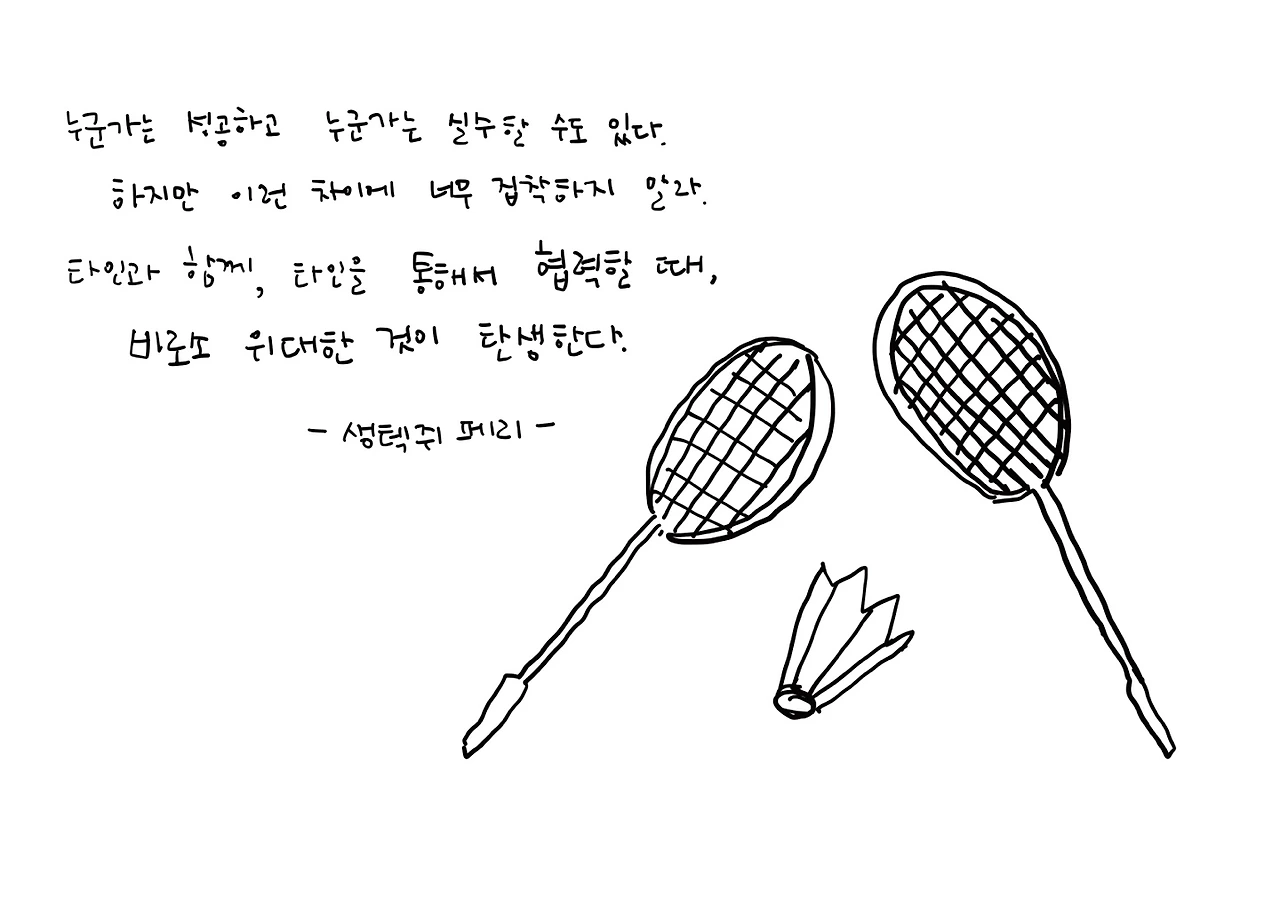 누군가는 성공하고 누군가는 실수할 수도 있다.
하지만 이런 차이에 너무 집착하지 말라.
타인과 함께, 타인을 통해서 협력할 때,
바로소 위대한 것이 탄생한다.
- 생텍쥐 페리 -